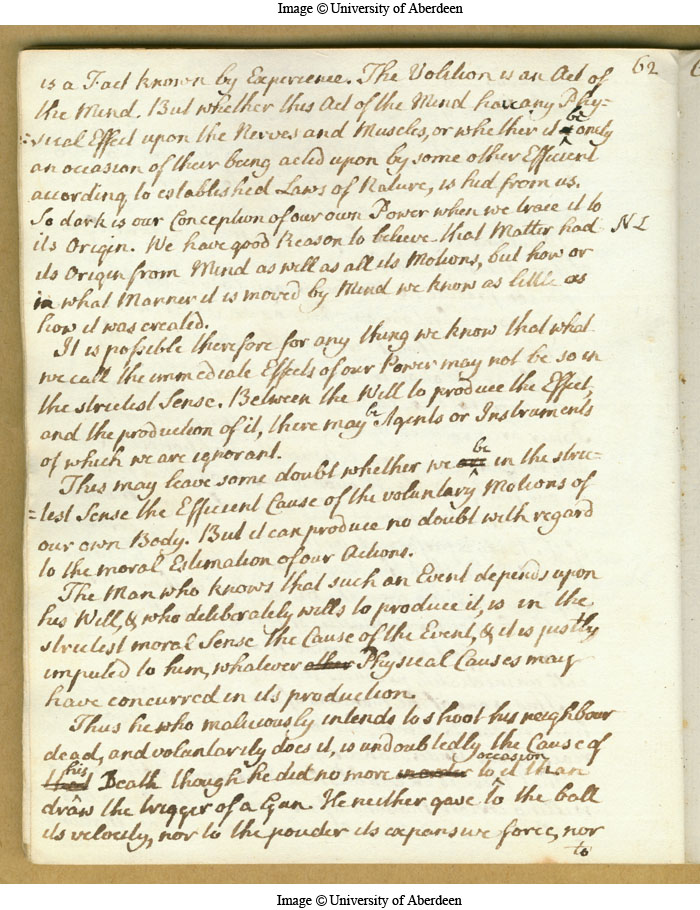 Image © University of Aberdeen
62
is a Fact known by Experience. The Volition is an Act of
the Mind. But whether this Act of the Mind have any Phy=
=sical Effect upon the Nerves and Muscles, or whether it be only
an occasion of their being acted upon by some other Efficient
according to established Laws of Nature, is hid from us.
So dark is our Conception of our own Power when we trace it to
its Origin. We have good Reason to believe that Matter had NL
its Origin from Mind as well as all its Motions, but how or
in what Manner it is moved by Mind we know as little as
how it was created.
It is possible therefore for any thing we know that what
we call the immediate Effects of our Power may not be so in
the strictest Sense. Between the Will to produce the Effect,
and the production of it, there may be Agents or Instruments
of which we are ignorant.
This may leave some doubt whether we are be in the stric=
=test Sense the Efficient Cause of the voluntary Motions of
our own Body. But it can produce no doubt with regard
to the moral Estimation of our Actions.
The Man who knows that such an Event depends upon
his Will, & who deliberately wills to produce it, is in the
strictest moral Sense the Cause of the Event, & it is justly
imputed to him, whatever other Physical Causes may
have concurred in its production.
Thus he who maliciously intends to shoot his neighbour
dead, and voluntarily does it, is undoubtedly the Cause of
his Death though he did no more to occasion it than
draw the trigger of a Gun. He neither gave to the ball
its velocity, nor to the powder its expansive force, nor
to
Image © University of Aberdeen